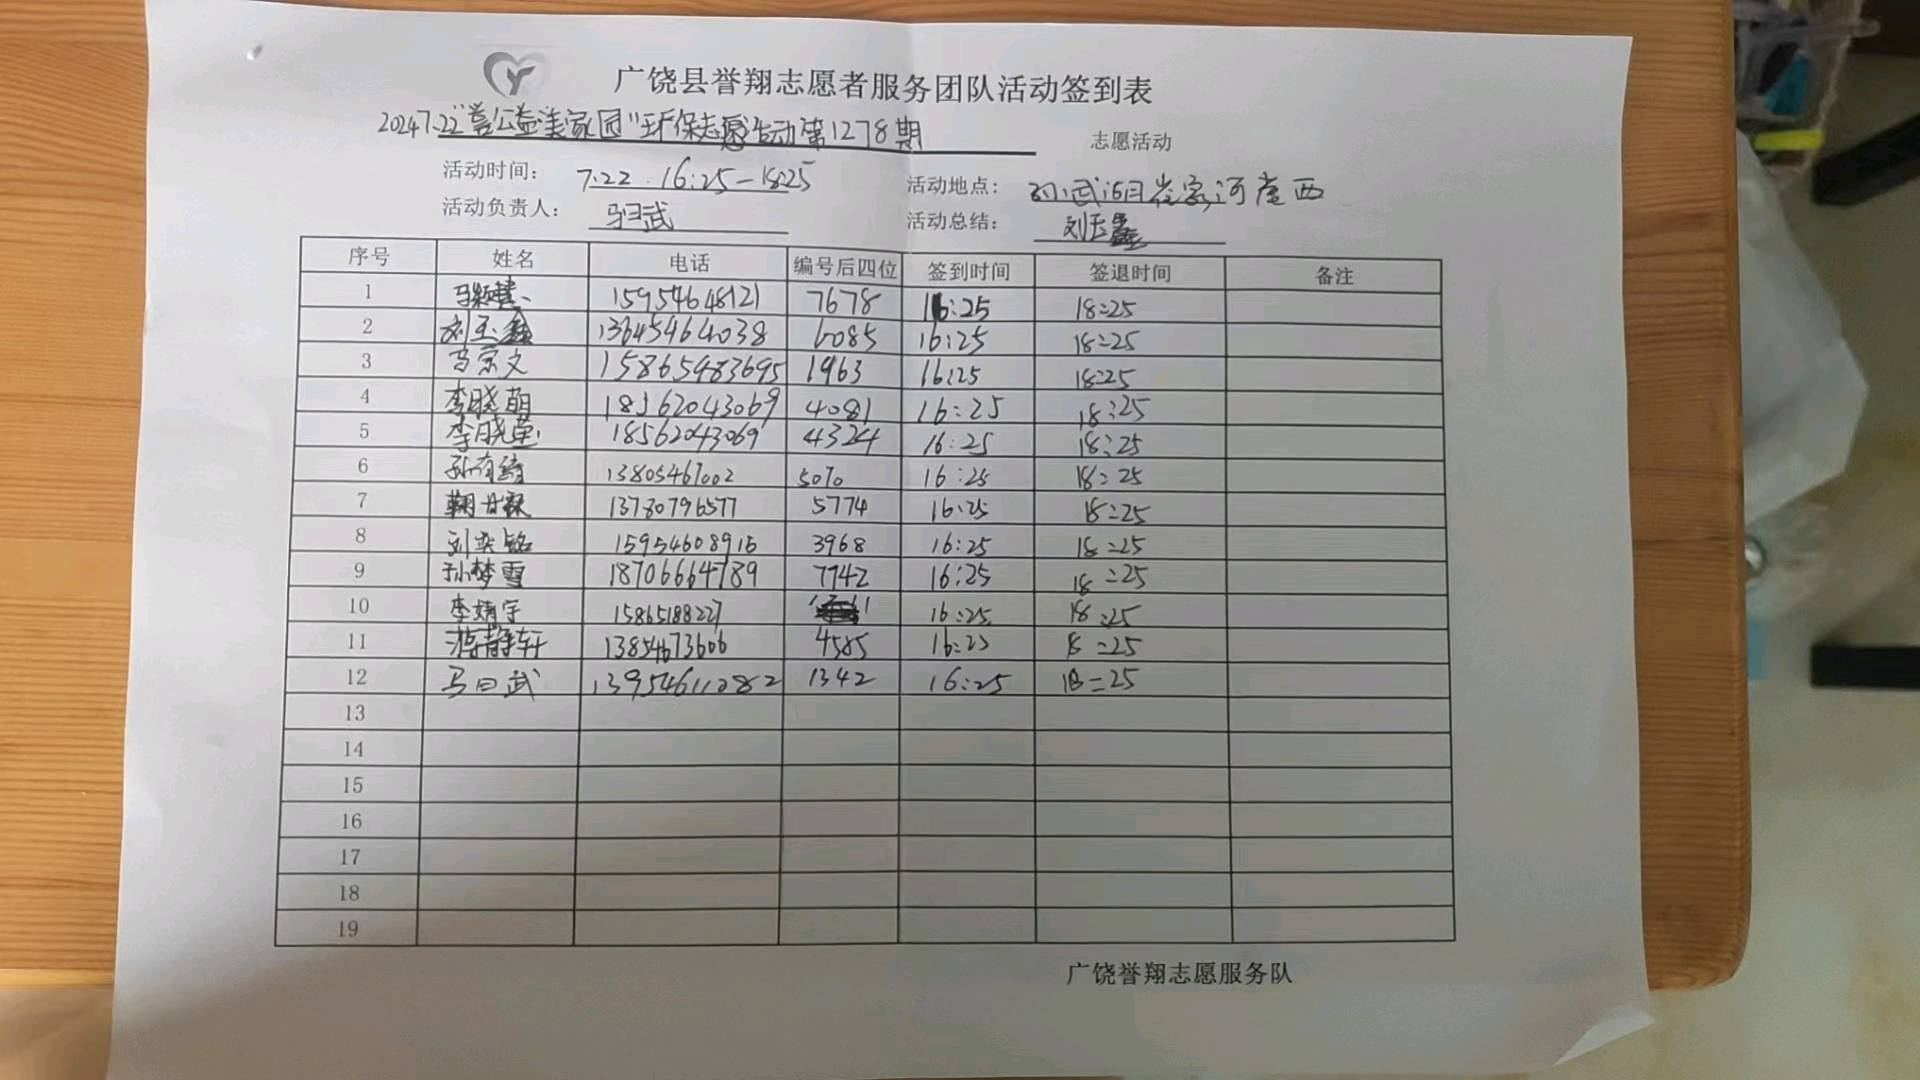 广饶县誉翔志愿者服务团队活动签到表
20247.22"善公益美家园"环保志愿活动第1278期 志愿活动
活动时间: 7.22.16:25-18:25 活动地点: 河崖西
活动负责人: 马曰武 活动总结: 刘玉鑫
序号 姓名 电话 编号后四位 签到时间 签退时间 备注
1 15954648121 7678 16:25 18:25
2 刘玉鑫 13645464038 6085 16:25 18:25
3 马宗文 15865483695 1963 16:25 18:25
4 李晓萌 18562043069 4081 16:25 18:25
5 李晓 18562043069 4324 16:25 18:25
6 孙有 13805467002 5070 16:25 18:25
7 5774 16:25 18:25
8 刘奕铭 15954608916 3968 16:25 18:25
9 孙梦雪 18706664789 7742 16:25 18:25
10 李婧宇 15865188227 16:25 18:25
11 静轩 13854673606 4585 16:25 18:25
12 马曰武 13954611282 1342 16:25 18:25
13
14
15
16
17
18
19
广饶誉翔志愿服务队